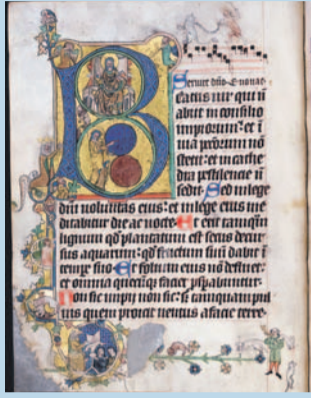 Seruite dño Euouae
B
eatus uir qui ñ
abiit in consilio
impiorum: et ī
uia pctorum nō
stetit: et in cathe
dra pestilencie ñ
sedit. Sed in lege
dñi uoluntas eius: et in lege eius me
ditabitur die ac nocte. Et erit tamqm
lignum qd plantatum est secus decur
sus aquarum: qd fructum suū dabit ī
tempe suo. Et folium eius nō defluet:
et omnia quecūqz faciet pspabuntur.
Non sic impii non sic: tamquam pul
uis quem proicit uentus a facie terre.